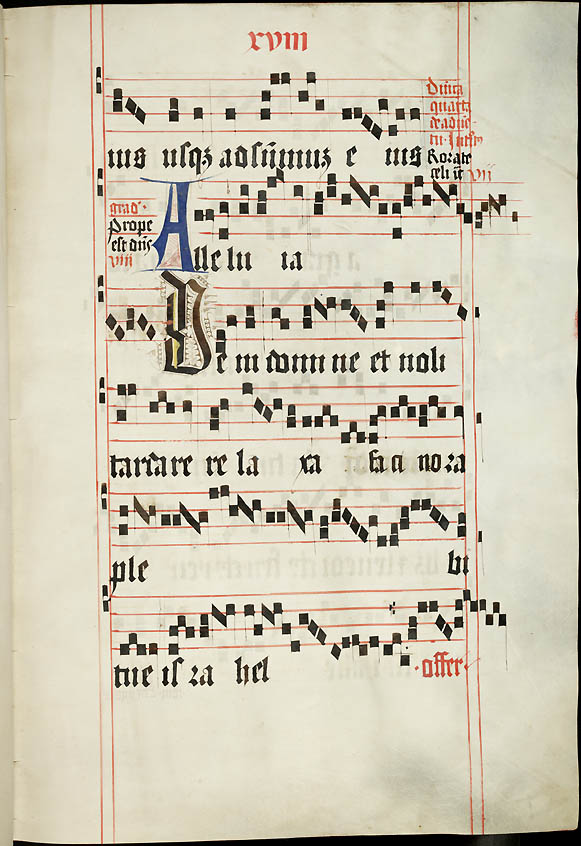 xviii
ius usqz ad sūmuz e ius
Dnīca
quarta
de aduē
Rorate
celi
vii
grad'.
Prope
est dn̄s
viii
Alle lu ia
Ve ni domi ne et noli
tardare re la xa faci no ra
ple bi
tue is ra hel
.offer.